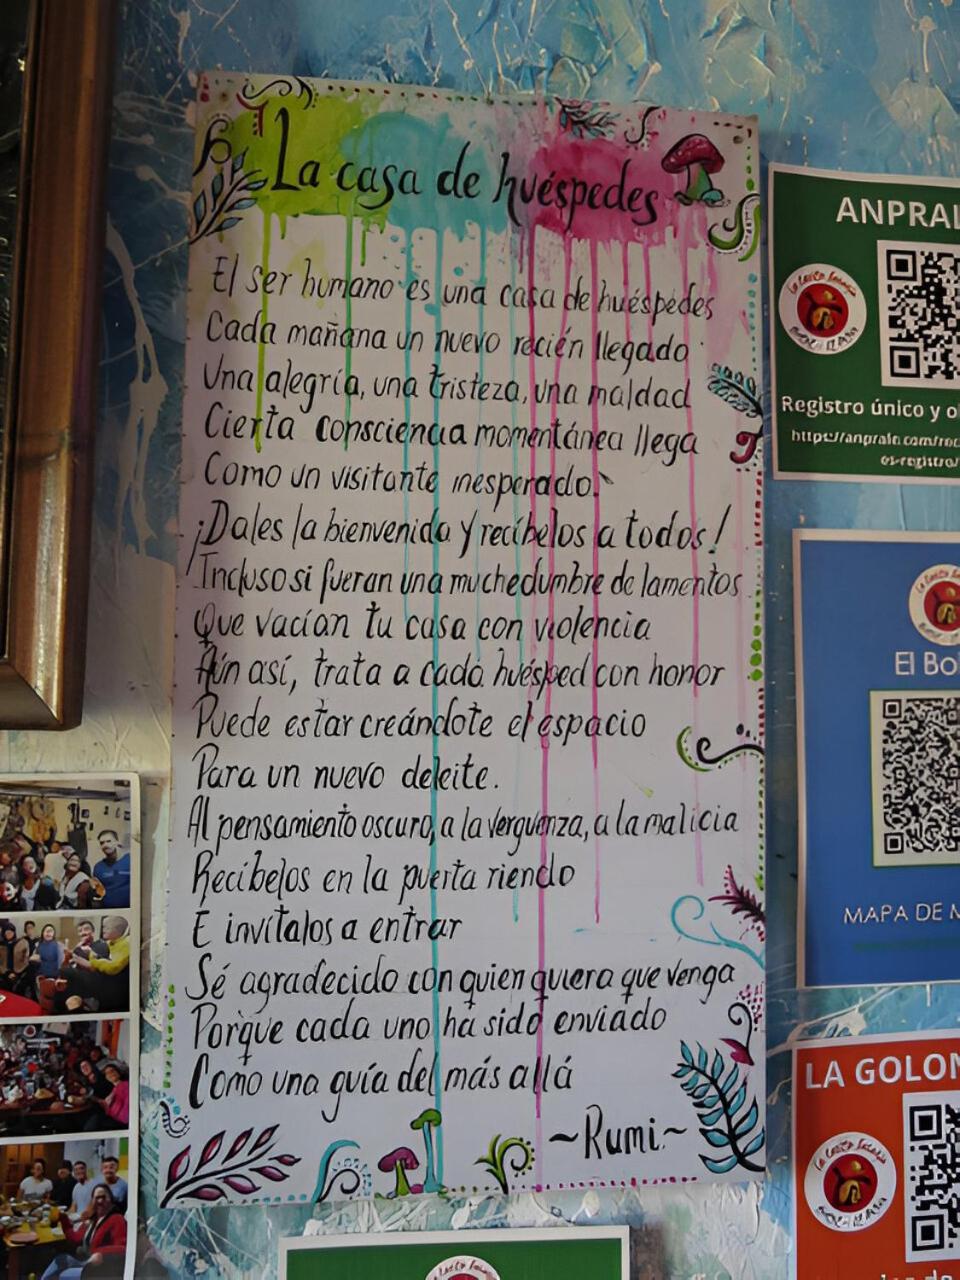 La casa de huéspedes
El ser humano es una casa de huéspedes
Cada mañana un nuevo recién llegado
Una alegría, una tristeza, una maldad
Cierta consciencia momentánea llega
Como un visitante inesperado.
¡Dales la bienvenida y recíbelos a todos!
Incluso si fueran una muchedumbre de lamentos
Que vacían tu casa con violencia
Aún así, trata a cada huésped con honor
Puede estar creándote el espacio
Para un nuevo deleite.
Al pensamiento oscuro, a la verguenza, a la malicia
Recíbelos en la puerta riendo
E invítalos a entrar
Sé agradecido con quien quiera que venga
Porque cada uno ha sido enviado
Como una guía del más allá
~Rumi.~
ANPRAL
Registro único y o
El Bo
MAPA DE M
LA GOLON